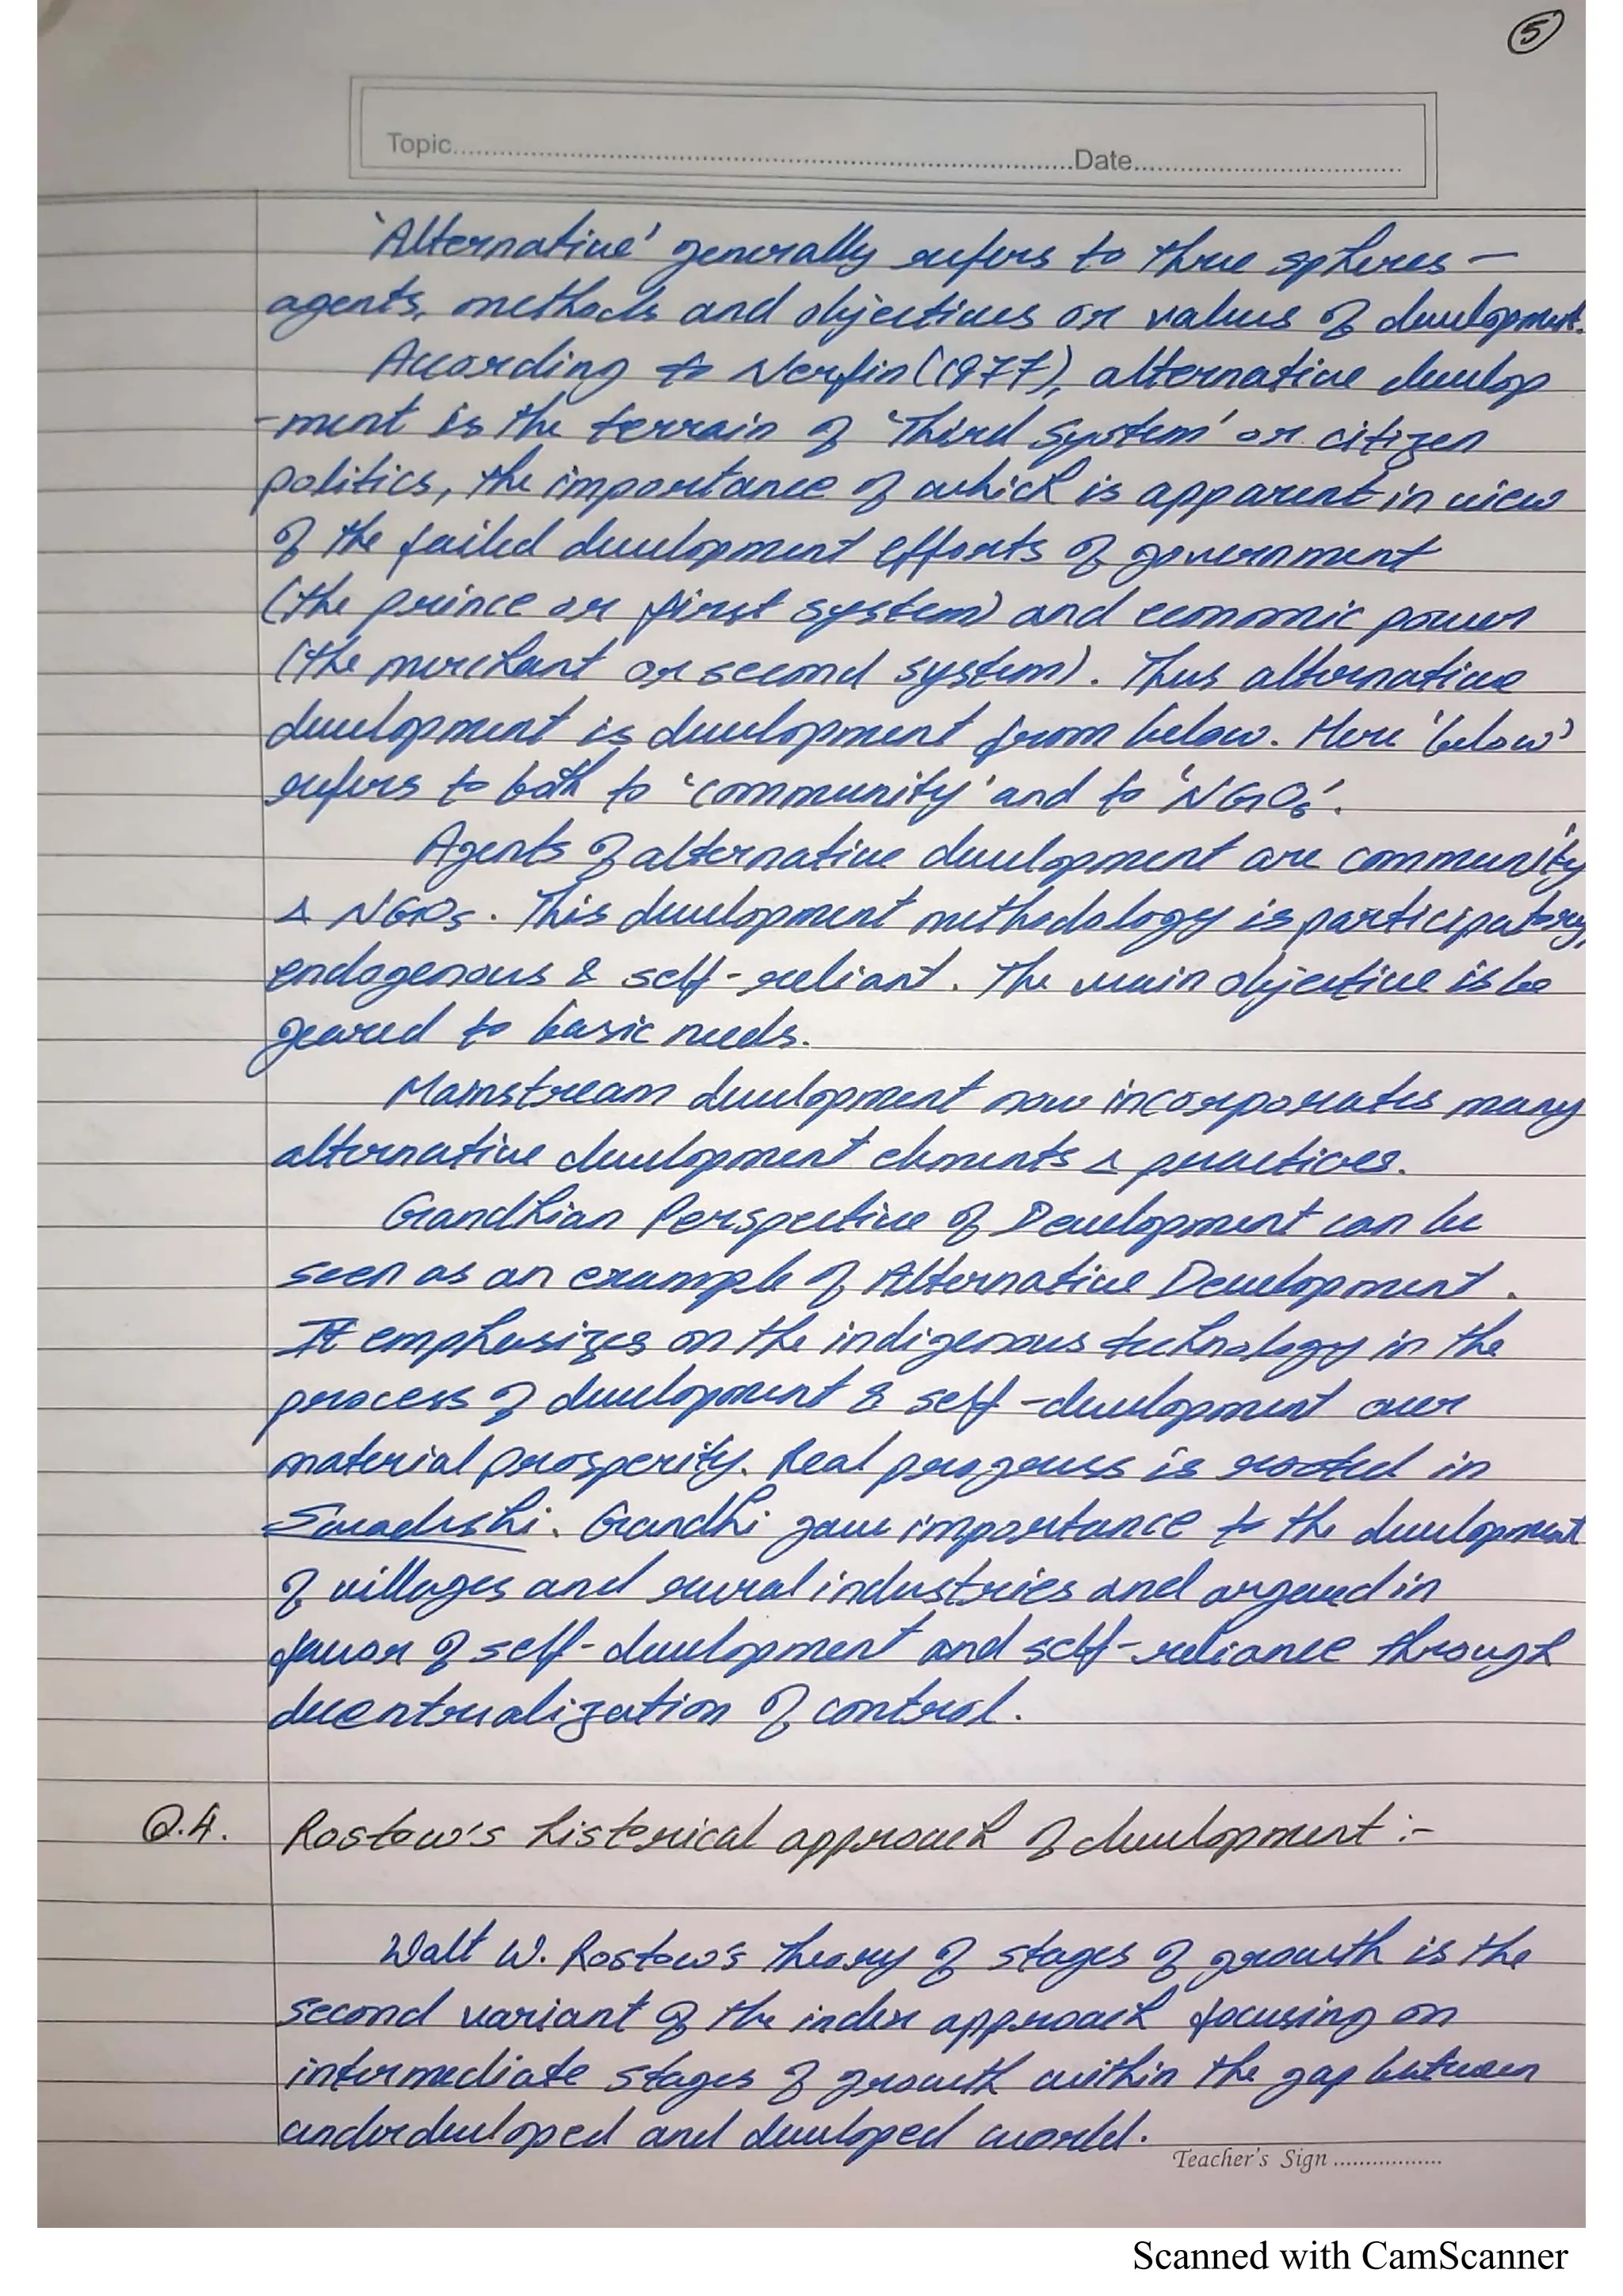 5
Topic..........Date..........
'Alternative' generally refers to three spheres –
agents, methods and objectives or values of development.
According to Nerfin (1977), alternative develop
-ment is the terrain of 'Third System' or citizen
politics, the importance of which is apparent in view
of the failed development efforts of government
(the prince or first system) and economic power
(the merchant or second system). Thus alternative
development is development from below. Here 'below'
refers to both to 'community' and to 'NGOs'.
Agents of alternative development are community
& NGOs. This development methodology is participatory,
endogenous & self-reliant. The main objective is be
geared to basic needs.
Mainstream development now incorporates many
alternative development elements & practices.
Gandhian Perspective of Development can be
seen as an example of Alternative Development.
It emphasizes on the indigenous technology in the
process of development & self-development over
material prosperity. Real progress is rooted in
Swadeshi. Gandhi gave importance to the development
of villages and rural industries and argued in
favor of self-development and self-reliance through
decentralization of control.
Q.4. Rostow's historical approach of development :-
Walt W. Rostow's theory of stages of growth is the
second variant of the index approach focusing on
intermediate stages of growth within the gap between
underdeveloped and developed world.
Teacher's Sign ..........
Scanned with CamScanner